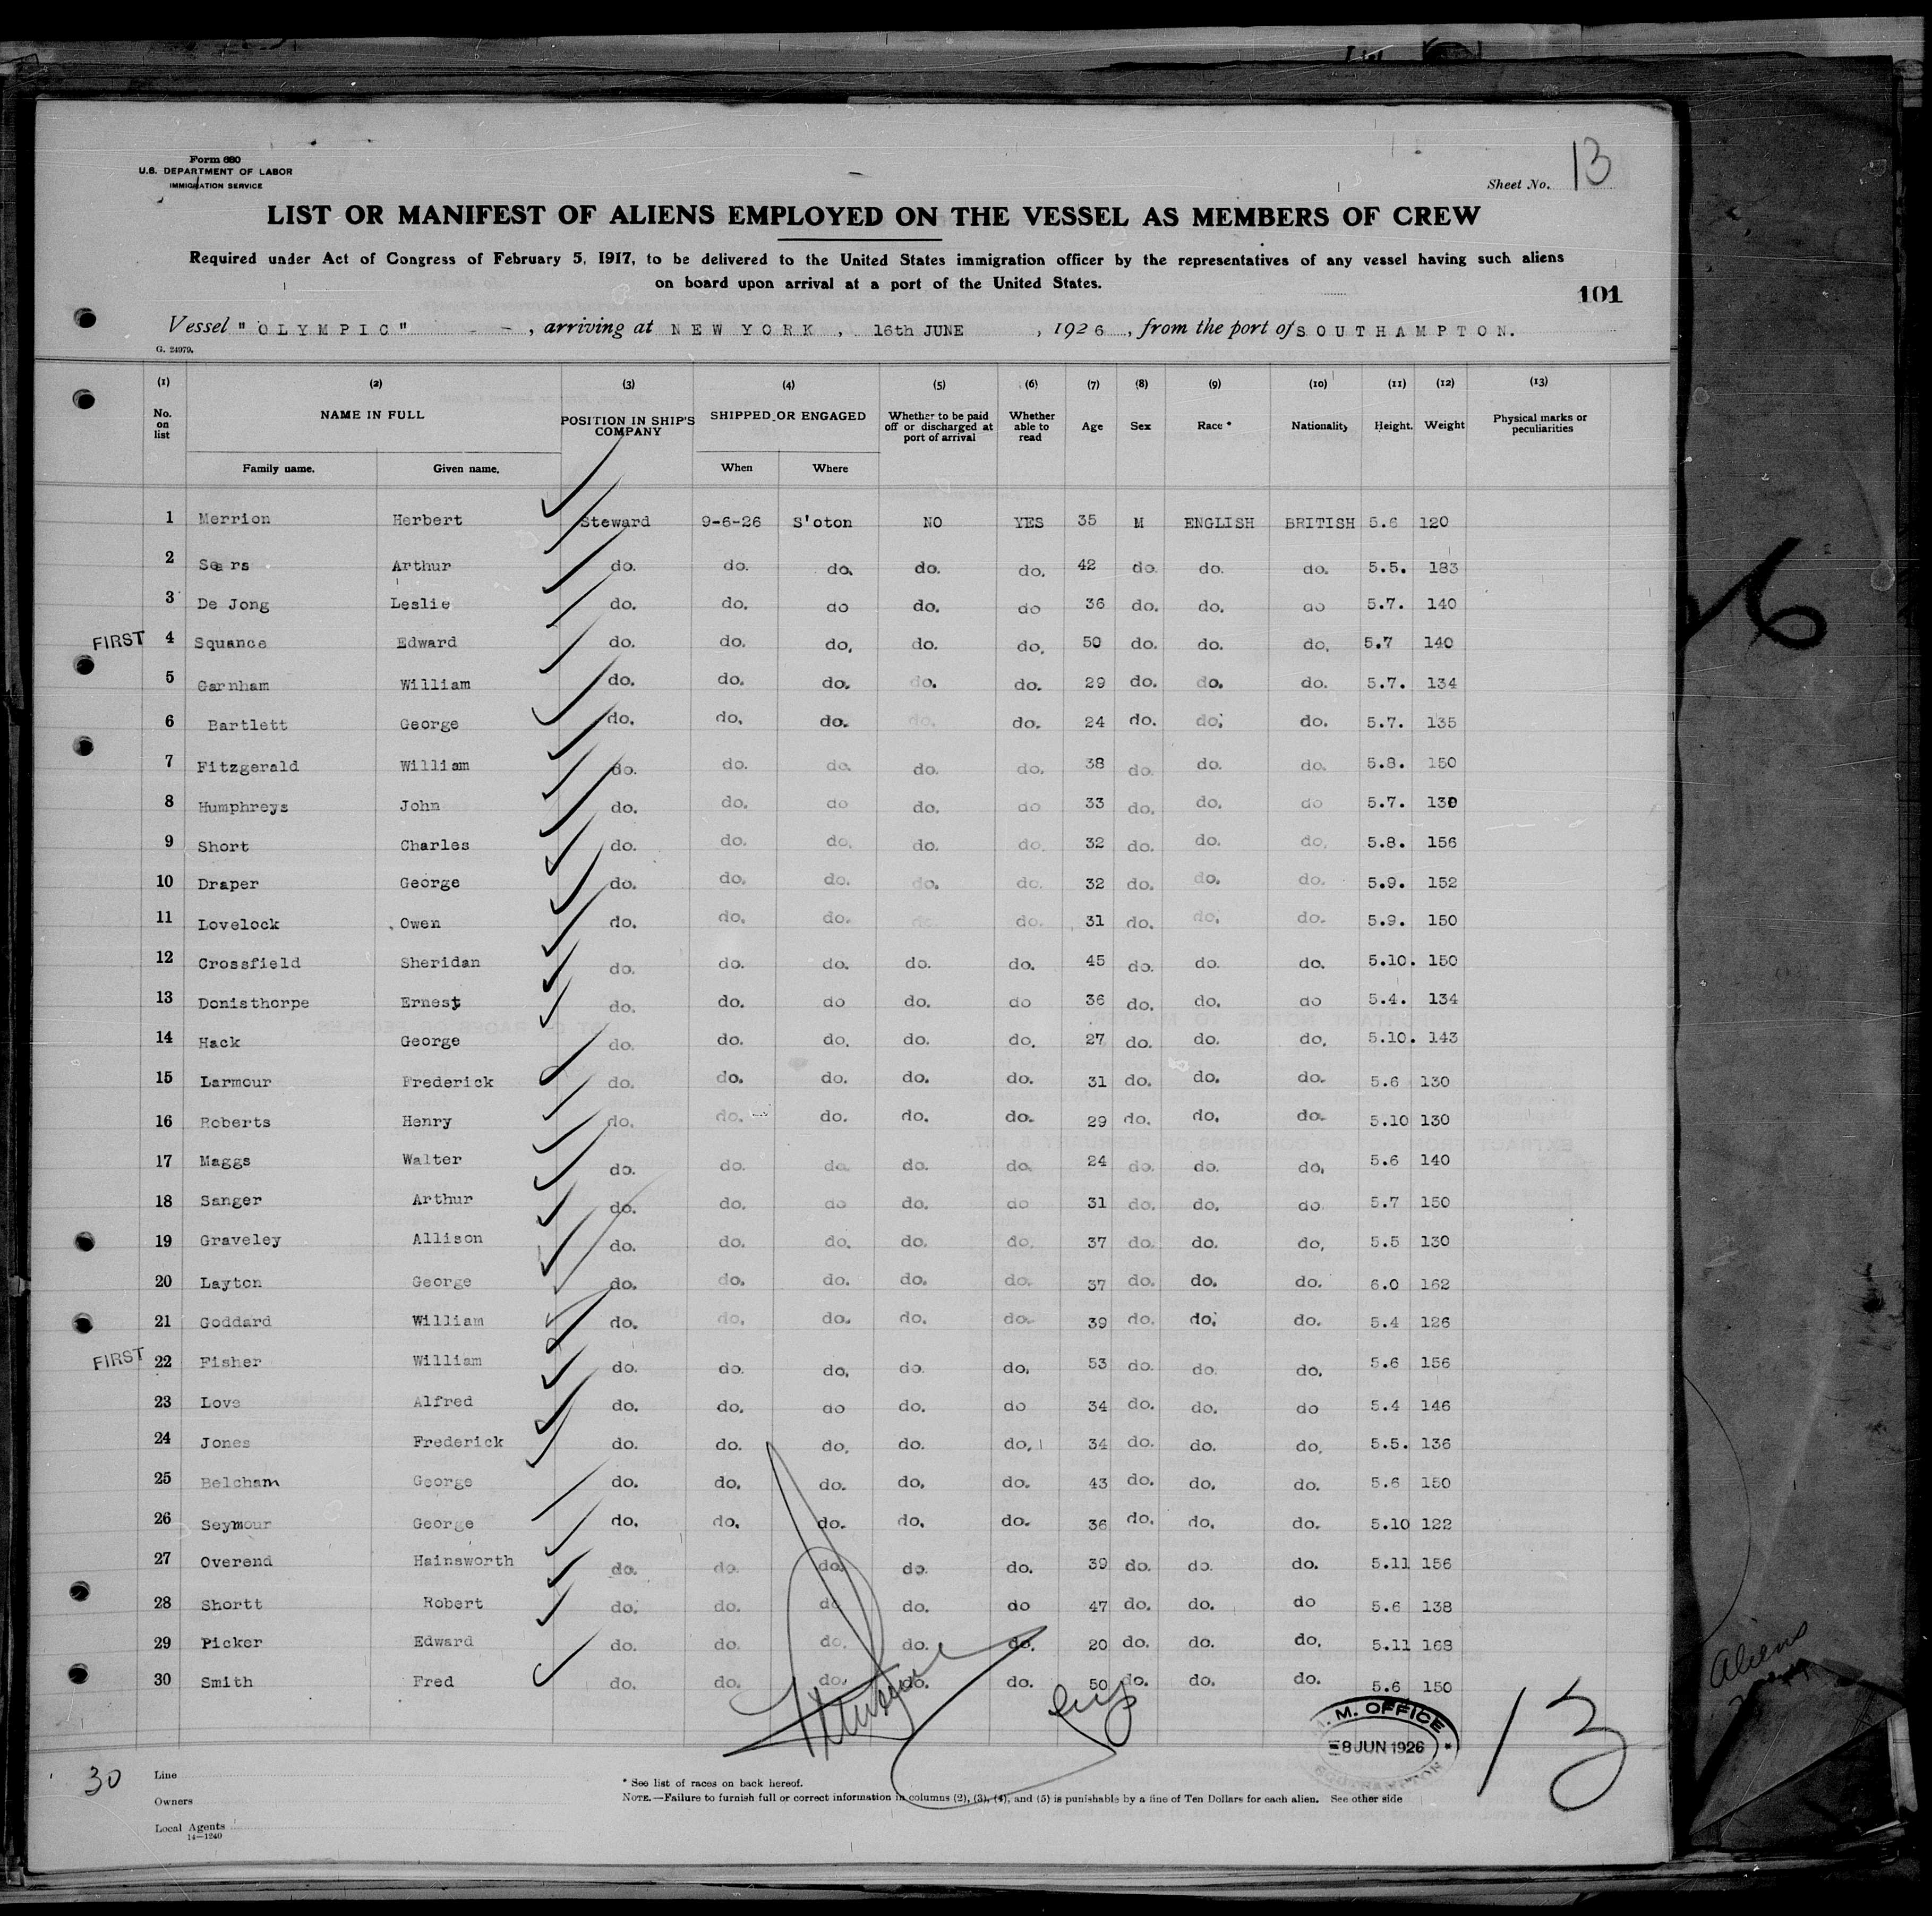 Form 680
U.S. DEPARTMENT OF LABOR
IMMIGRATION SERVICE
Sheet No. 13
LIST OR MANIFEST OF ALIENS EMPLOYED ON THE VESSEL AS MEMBERS OF CREW
Required under Act of Congress of February 5, 1917, to be delivered to the United States immigration officer by the representatives of any vessel having such aliens
on board upon arrival at a port of the United States.
101
Vessel "OLYMPIC" , arriving at NEW YORK , 16th JUNE , 1926 , from the port of SOUTHAMPTON.
G. 24979.
(1) (2) (3) (4) (5) (6) (7) (8) (9) (10) (11) (12) (13)
No. on list NAME IN FULL POSITION IN SHIP'S COMPANY SHIPPED OR ENGAGED Whether to be paid off or discharged at port of arrival Whether able to read Age Sex Race * Nationality Height. Weight Physical marks or peculiarities
Family name. Given name. When Where
1 Merrion Herbert Steward 9-6-26 S'oton NO YES 35 M ENGLISH BRITISH 5.6 120
2 Sears Arthur do. do. do. do. do. 42 do. do. do. 5.5. 183
3 De Jong Leslie do. do. do do. do 36 do. do. do 5.7. 140
FIRST 4 Squance Edward do. do. do. do. do. 50 do. do. do. 5.7 140
5 Garnham William do. do. do. do. do. 29 do. do. do. 5.7. 134
6 Bartlett George do. do. do. do. do. 24 do. do. do. 5.7. 135
7 Fitzgerald William do. do. do. do. do. 38 do. do. do. 5.8. 150
8 Humphreys John do. do. do do. do 33 do. do. do 5.7. 139
9 Short Charles do. do. do. do. do. 32 do. do. do. 5.8. 156
10 Draper George do. do. do. do. do. 32 do. do. do. 5.9. 152
11 Lovelock Owen do. do. do. do. do. 31 do. do. do. 5.9. 150
12 Crossfield Sheridan do. do. do. do. do. 45 do. do. do. 5.10. 150
13 Donisthorpe Ernest do. do. do do. do 36 do. do. do 5.4. 134
14 Hack George do. do. do. do. do. 27 do. do. do. 5.10. 143
15 Larmour Frederick do. do. do. do. do. 31 do. do. do. 5.6 130
16 Roberts Henry do. do. do. do. do. 29 do. do. do. 5.10 130
17 Maggs Walter do. do. do. do. do. 24 do. do. do. 5.6 140
18 Sanger Arthur do. do. do do. do 31 do. do. do 5.7 150
19 Graveley Allison do. do. do. do. do. 37 do. do. do. 5.5 130
20 Layton George do. do. do. do. do. 37 do. do. do. 6.0 162
21 Goddard William do. do. do. do. do. 39 do. do. do. 5.4 126
FIRST 22 Fisher William do. do. do. do. do. 53 do. do. do. 5.6 156
23 Love Alfred do. do. do do. do 34 do. do. do 5.4 146
24 Jones Frederick do. do. do. do. do. 34 do. do. do. 5.5. 136
25 Belcham George do. do. do. do. do. 43 do. do. do. 5.6 150
26 Seymour George do. do. do. do. do. 36 do. do. do. 5.10 122
27 Overend Hainsworth do. do. do. do. do. 39 do. do. do. 5.11 156
28 Shortt Robert do. do. do do. do 47 do. do. do 5.6 138
29 Picker Edward do. do. do. do. do. 20 do. do. do. 5.11 168
30 Smith Fred do. do. do. do. do. 50 do. do. do. 5.6 150
M. OFFICE
8 JUN 1926
SOUTHAMPTON
13
30
Line
Owners
Local Agents
14—1240
* See list of races on back hereof.
NOTE.—Failure to furnish full or correct information in columns (2), (3), (4), and (5) is punishable by a fine of Ten Dollars for each alien. See other side
Aliens